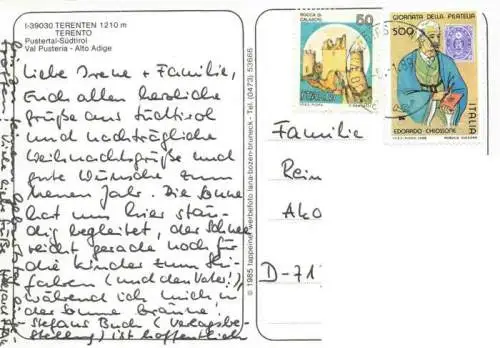 I-39030 TERENTEN 1210 m
TERENTO
Pustertal-Südtirol
Val Pusteria - Alto Adige
Liebe Irene + Familie,
Euch allen herzliche
Grüße aus Südtirol
und nachträgliche
Weihnachtsgrüße und
gute Wünsche zum
neuen Jahr. Die Sonne
hat uns hier stän-
dig begleitet, der Schnee
reicht gerade noch für
die Kinder zum Ski-
fahren (und den Vater!),
während ich mich in
der Sonne bräune.
Stefans Buch (Verlagsbe-
stellung) ist hoffentlich
© 1985 tappeiner werbefoto lana-bozen-bruneck - Tel. (0473) 53666
ROCCA DI
CALASCIO
50
ITALIA
GIORNATA DELLA FILATELIA
500
EDOARDO CHIOSSONE
ITALIA
Familie
Rein
Ako
D-71